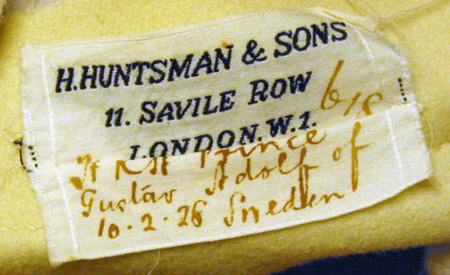 H. HUNTSMAN & SONS
11. SAVILE ROW
LONDON. W.1.
H R H Prince
Gustav Adolf of
10.2.26 Sweden